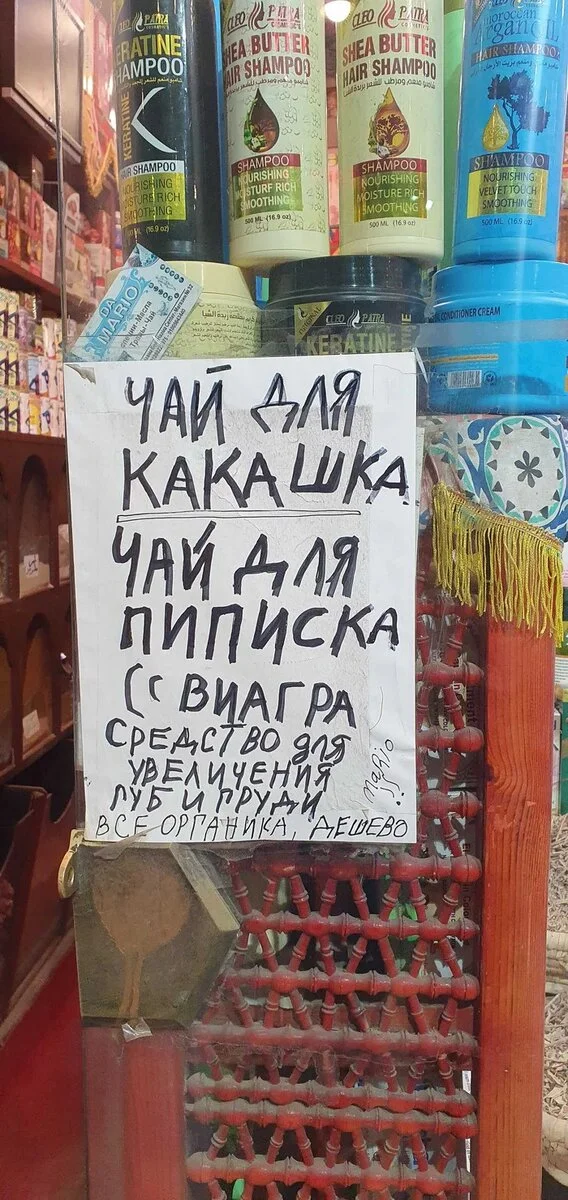 CLEO PATRA
KERATINE
SHAMPOO
KERATINE
HAIR SHAMPOO
NOURISHING
MOISTURE RICH
SMOOTHING
500 ML (16.9 oz)
CLEO PATRA
COSMETICS
SHEA BUTTER
HAIR SHAMPOO
SHAMPOO
NOURISHING
MOISTURE RICH
SMOOTHING
500 ML (16.9 oz)
CLEO PATRA
COSMETICS
SHEA BUTTER
HAIR SHAMPOO
SHAMPOO
NOURISHING
MOISTURE RICH
SMOOTHING
500 ML (16.9 oz)
moroccan
argan OIL
HAIR SHAMPOO
SHAMPOO
NOURISHING
VELVET TOUCH
SMOOTHING
500 ML (16.9 oz)
DA
MARIO
CLEO PATRA
KERATINE
CONDITIONER CREAM
ЧАЙ ДЛЯ
КАКАШКА
ЧАЙ ДЛЯ
ПИПИСКА
(( ВИАГРА
СРЕДСТВО ДЛЯ
УВЕЛИЧЕНИЯ
ГУБ И ГРУДИ
ВСЕ ОРГАНИКА, ДЕШЕВО
maRio